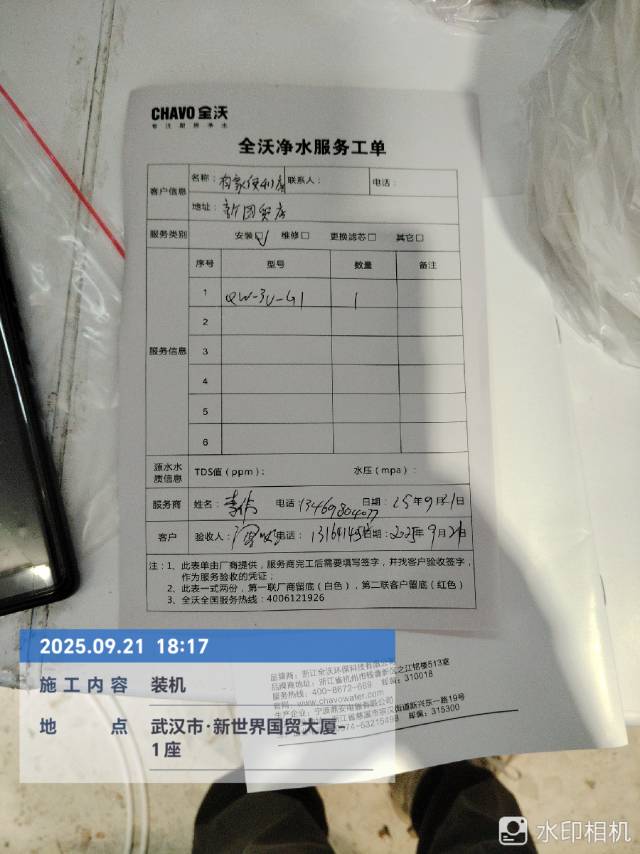 CHAVO 全沃
专注厨房净水
全沃净水服务工单
客户信息
名称： 联系人： 电话：
地址：新国贸店
服务类别 安装☑ 维修□ 更换滤芯□ 其它□
服务信息
序号 型号 数量 备注
1 QW-3U-G1 1
2
3
4
5
6
源水水质信息 TDS值（ppm）： 水压（mpa）：
服务商 姓名：李伟 电话：13469804077 日期：25年9月21日
客户 验收人： 电话： 日期：2025年9月21日
注：1、此表单由厂商提供，服务商完工后需要填写签字，并找客户验收签字，
作为服务验收的凭证；
2、此表一式两份，第一联厂商留底（白色），第二联客户留底（红色）
3、全沃全国服务热线：4006121926
2025.09.21 18:17
施工内容 装机
地点 武汉市·新世界国贸大厦-
1座
浙江全沃环保科技有限公司
品牌商地址：浙江省杭州市钱塘新区之江铭楼513室
服务热线：400-8672-668 邮编：310018
www.chavowater.com
生产企业：宁波
浙江省慈溪市宗汉街道新兴东一路19号
0574-63215498 邮编：315300
水印相机